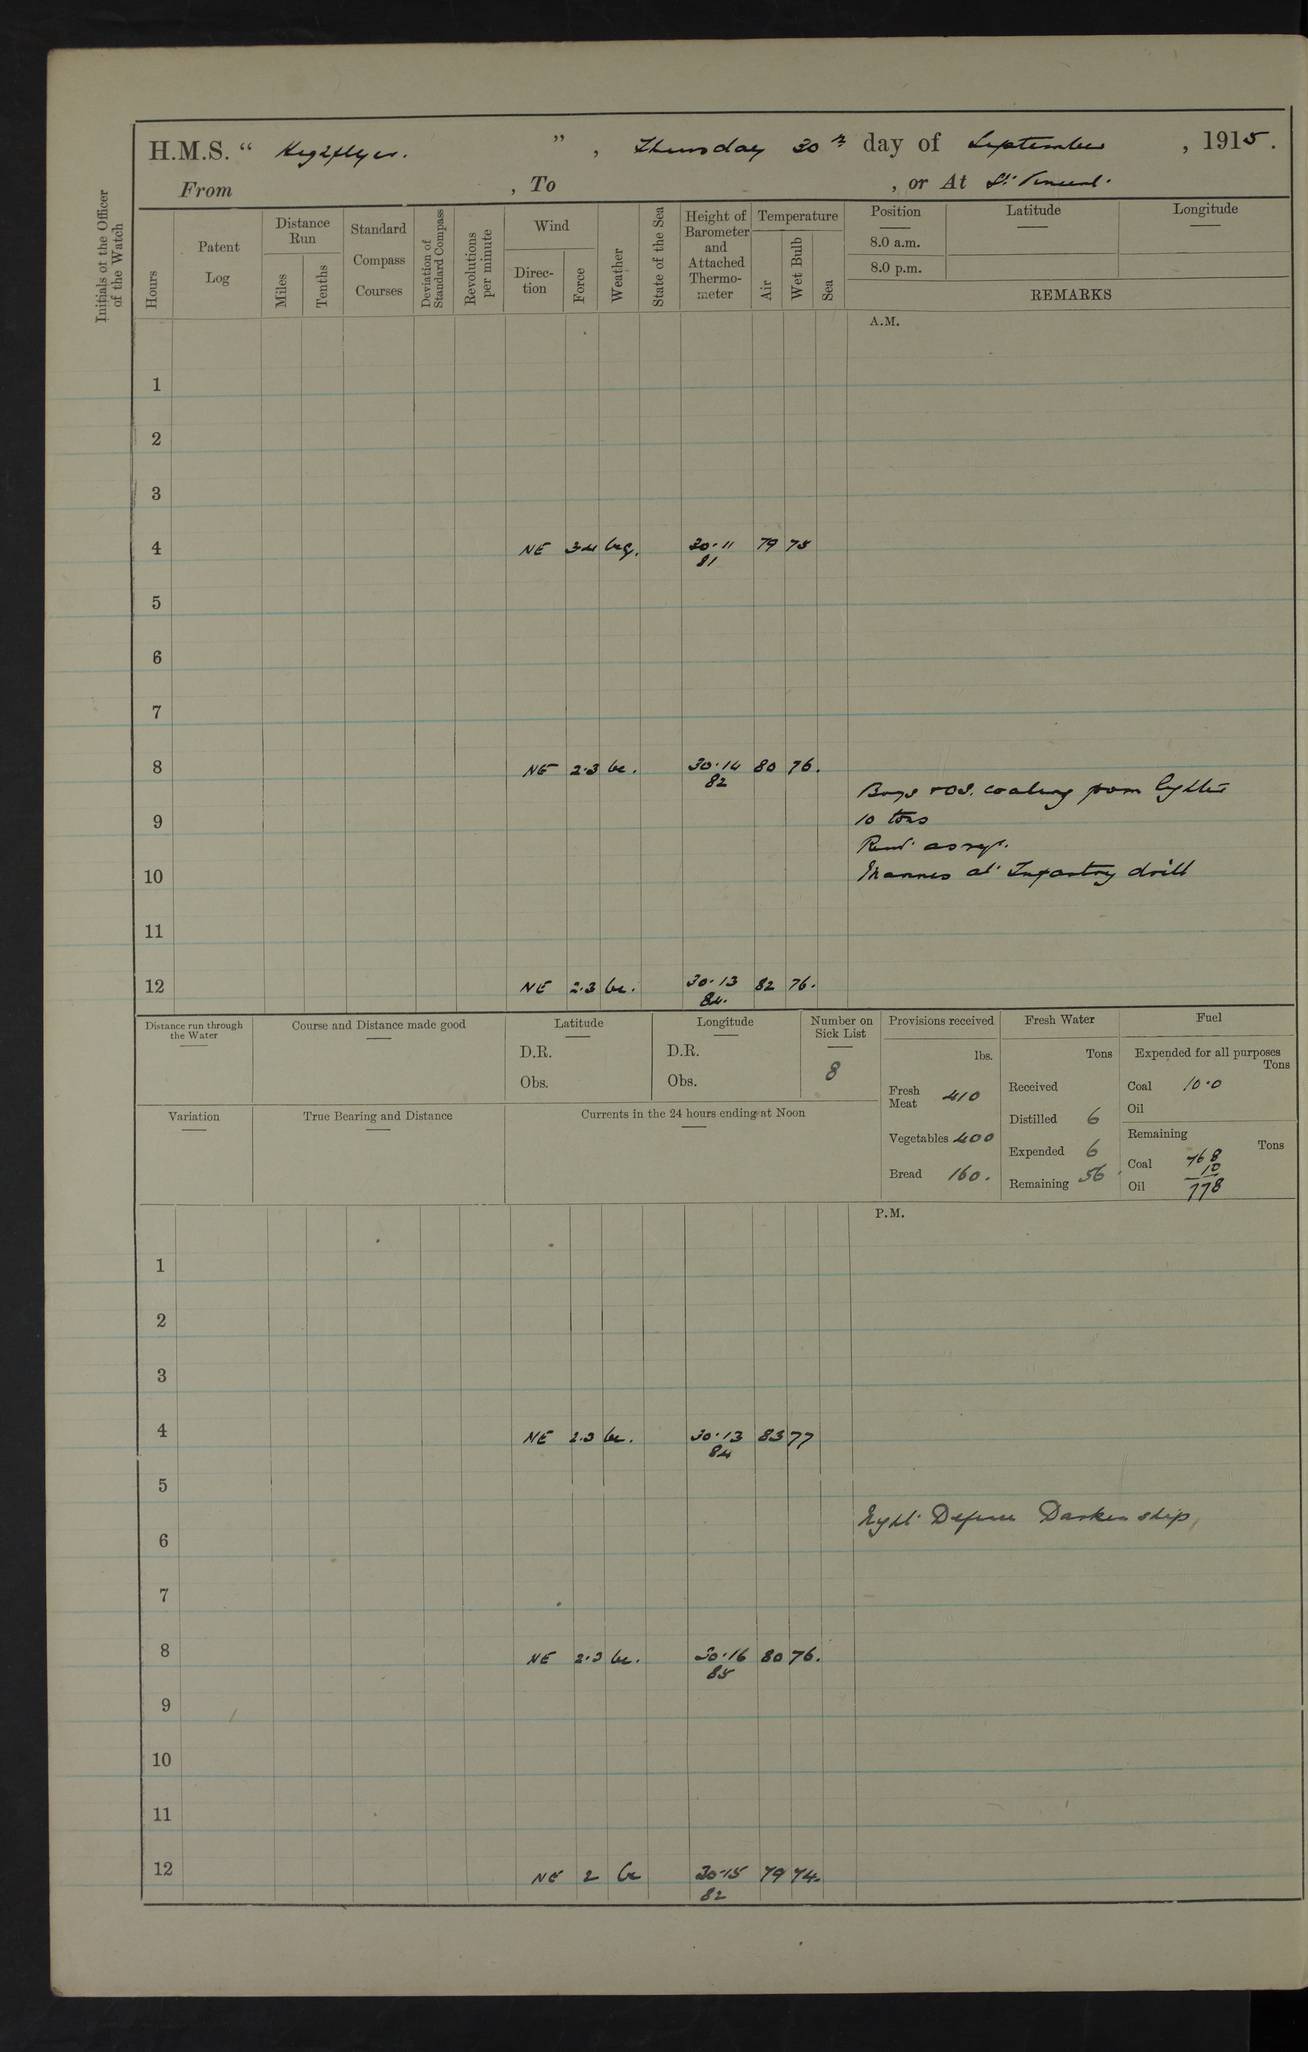 H.M.S. “ Highflyer. ” , Thursday 30th day of September , 1915.
From , To , or At St. Vincent.
Initials of the Officer of the Watch
Hours
Patent Log
Distance Run
Miles
Tenths
Standard Compass Courses
Deviation of Standard Compass
Revolutions per minute
Wind
Direc-tion
Force
Weather
State of the Sea
Height of Barometer and Attached Thermo-meter
Temperature
Air
Wet Bulb
Sea
Position
8.0 a.m.
8.0 p.m.
Latitude
Longitude
REMARKS
A.M.
1
2
3
4 NE 3.4 bcq. 30.11 79 75
81
5
6
7
8 NE 2.3 bc. 30.14 80 76.
82
Boys & OS. coaling from lighter
9 10 tons
Remr. as req.
10 Marines at Infantry drill
11
12 NE 2.3 bc. 30.13 82 76.
84.
Distance run through the Water
Course and Distance made good
Latitude
D.R.
Obs.
Longitude
D.R.
Obs.
Number on Sick List
8
Provisions received
lbs.
Fresh Meat 410
Vegetables 400
Bread 160.
Fresh Water
Tons
Received
Distilled 6
Expended 6
Remaining 56
Fuel
Expended for all purposes
Tons
Coal 10.0
Oil
Remaining
Tons
Coal 768
10
Oil 778
Variation
True Bearing and Distance
Currents in the 24 hours ending at Noon
P.M.
1
2
3
4 NE 2.3 bc. 30.13 83 77
84
5
Night Defence Darken ship
6
7
8 NE 2.3 bc. 30.16 80 76.
85
9
10
11
12 NE 2 bc 30.15 79 74.
82